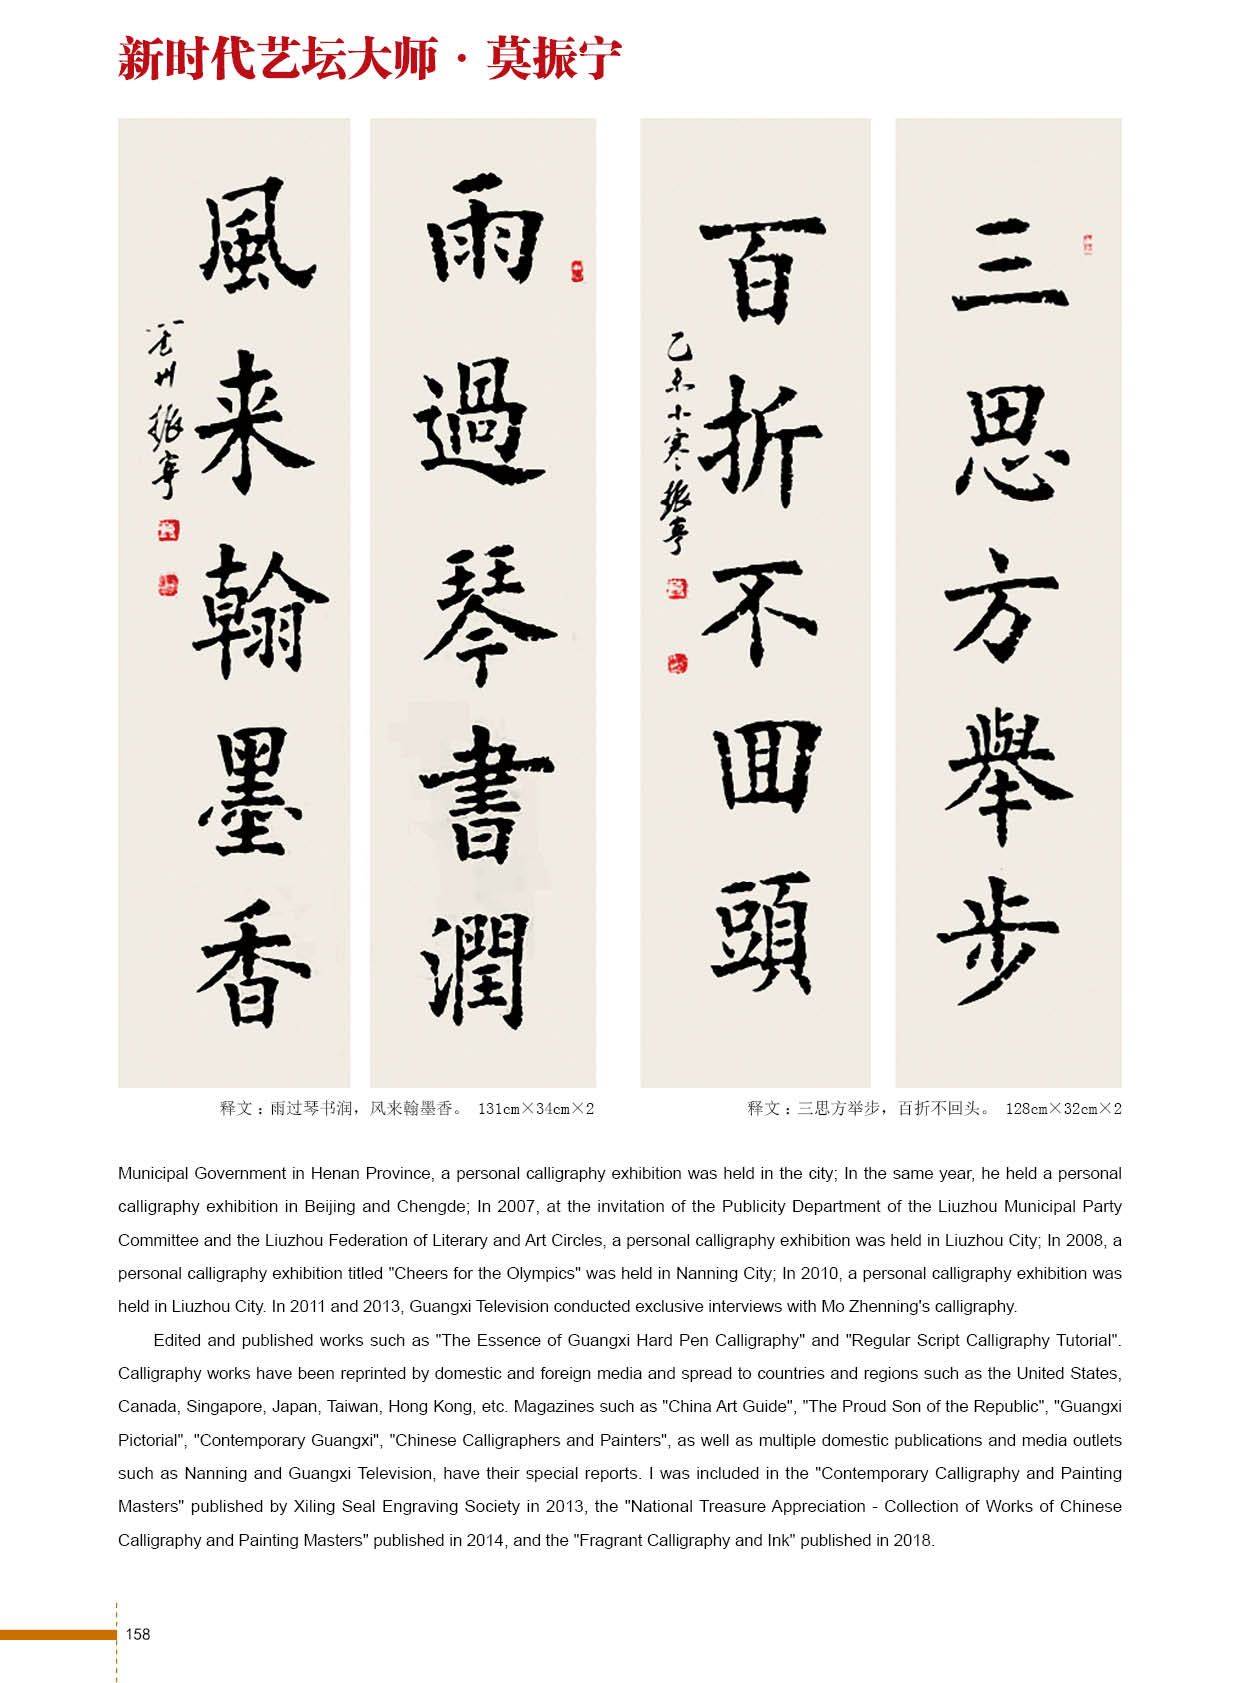 新时代艺坛大师·莫振宁
三思方舉步
百折不回頭
乙未小寒 振寧
雨過琴書潤
風来翰墨香
州 振寧
释文：雨过琴书润，风来翰墨香。 131cm×34cm×2
释文：三思方举步，百折不回头。 128cm×32cm×2
Municipal Government in Henan Province, a personal calligraphy exhibition was held in the city; In the same year, he held a personal
calligraphy exhibition in Beijing and Chengde; In 2007, at the invitation of the Publicity Department of the Liuzhou Municipal Party
Committee and the Liuzhou Federation of Literary and Art Circles, a personal calligraphy exhibition was held in Liuzhou City; In 2008, a
personal calligraphy exhibition titled "Cheers for the Olympics" was held in Nanning City; In 2010, a personal calligraphy exhibition was
held in Liuzhou City. In 2011 and 2013, Guangxi Television conducted exclusive interviews with Mo Zhenning's calligraphy.
Edited and published works such as "The Essence of Guangxi Hard Pen Calligraphy" and "Regular Script Calligraphy Tutorial".
Calligraphy works have been reprinted by domestic and foreign media and spread to countries and regions such as the United States,
Canada, Singapore, Japan, Taiwan, Hong Kong, etc. Magazines such as "China Art Guide", "The Proud Son of the Republic", "Guangxi
Pictorial", "Contemporary Guangxi", "Chinese Calligraphers and Painters", as well as multiple domestic publications and media outlets
such as Nanning and Guangxi Television, have their special reports. I was included in the "Contemporary Calligraphy and Painting
Masters" published by Xiling Seal Engraving Society in 2013, the "National Treasure Appreciation - Collection of Works of Chinese
Calligraphy and Painting Masters" published in 2014, and the "Fragrant Calligraphy and Ink" published in 2018.
158